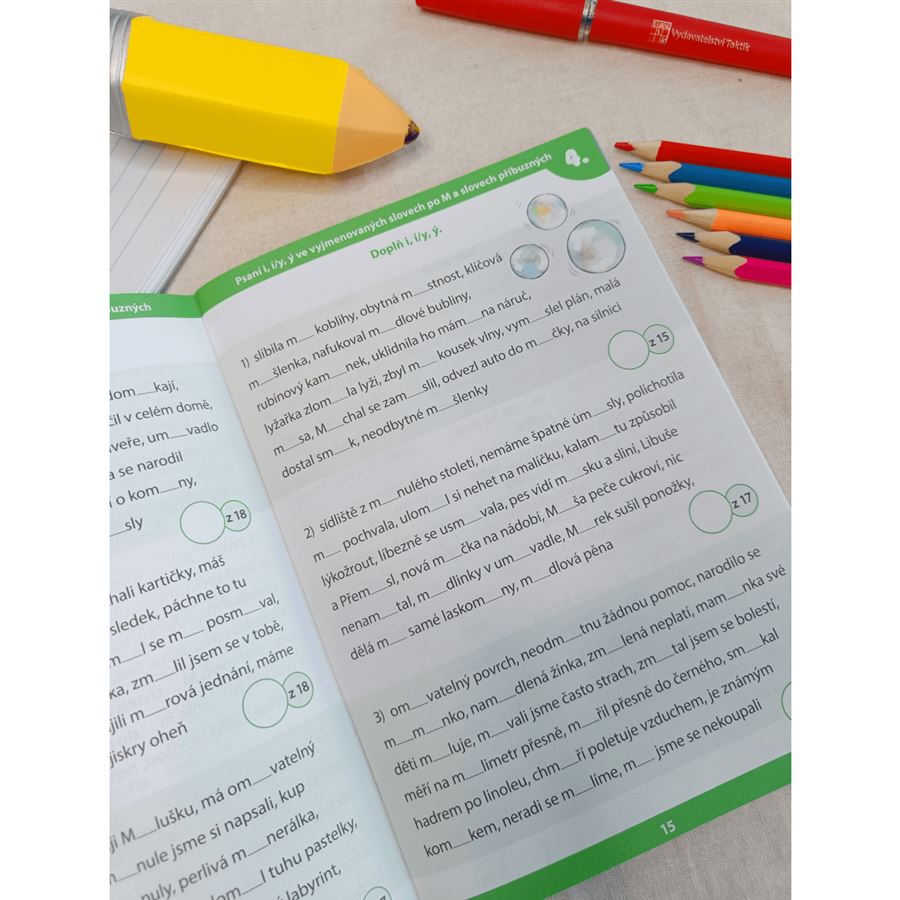 Vydavatelství Taktik
4.
Psaní i, í/y, ý ve vyjmenovaných slovech po M a slovech příbuzných
Doplň i, í/y, ý.
1) slíbila m__ koblihy, obytná m__stnost, klíčová
m__šlenka, nafukoval m__dlové bubliny,
rubínový kam__nek, uklidnila ho mám__na náruč,
lyžařka zlom__la lyži, zbyl m__ kousek vlny, vym__šlel plán, malá
m__sa, M__chal se zam__slil, odvezl auto do m__čky, na silnici
dostal sm__k, neodbytné m__šlenky
z 15
2) sídliště z m__nulého století, nemáme špatné úm__sly, polichotila
m__ pochvala, ulom__l si nehet na malíčku, kalam__tu způsobil
lýkožrout, líbezně se usm__vala, pes vidí m__sku a sliní, Libuše
a Přem__sl, nová m__čka na nádobí, M__ša peče cukroví, nic
nenam__tal, m__dlinky v um__vadle, M__rek sušil ponožky,
dělá m__ samé laskom__ny, m__dlová pěna
z 17
3) om__vatelný povrch, neodm__tnu žádnou pomoc, narodilo se
m__m__nko, nam__dlená žínka, zm__lená neplatí, mam__nka své
děti m__luje, m__vali jsme často strach, zm__tal jsem se bolestí,
měří na m__limetr přesně, m__řil přesně do černého, sm__kal
hadrem po linoleu, chm__ří poletuje vzduchem, je známým
kom__kem, neradi se m__líme, m__ jsme se nekoupali
15
buzných
dom__kají,
čil v celém domě,
veře, um__vadlo
a se narodil
i o kom__ny,
__sly
z 18
hali kartičky, máš
sledek, páchne to tu
m__l se m__ posm__val,
ka, zm__lil jsem se v tobě,
jili m__rová jednání, máme
jiskry oheň
z 18
ji M__lušku, má om__vatelný
m__nule jsme si napsali, kup
nuly, perlivá m__nerálka,
dom__l tuhu pastelky,
labyrint,